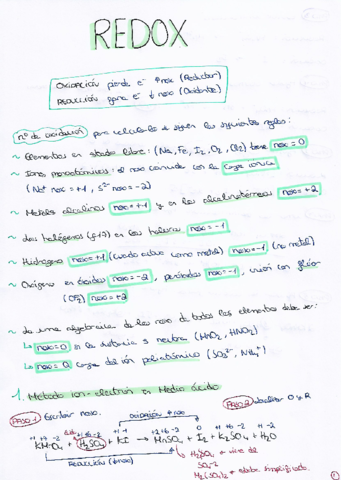 REDOX
OXIDACIÓN pierde e⁻ ↑nox (Reductor)
REDUCCIÓN gana e⁻ ↓ nox (Oxidante)
nº de oxidación, para calcularlo se siguen las siguientes reglas:
~ Elementos en estado libre: (Na, Fe, I₂, O₂, Cl₂) tiene nox = 0
~ Iones monoatómicos: el nox coincide con la carga iónica
(Na⁺ nox = +1, S²⁻ nox = -2)
~ Metales alcalinos nox = +1 y en los alcalinotérreos nox = +2
~ Los halógenos (g.17) en los haluros nox = -1
~ Hidrógeno nox = +1 (cuando actúa como metal) nox = -1 (no metal)
~ Oxígeno en óxidos nox = -2, peróxidos nox = -1, unión con flúor
(OF₂) nox = +2
~ La suma algebraica de los nox de todos los elementos debe ser:
nox = 0 si la sustancia es neutra (MnO₂, HNO₃)
nox = carga del ión poliatómico (SO₄²⁻, NH₄⁺)
1. Método ion-electrón en Medio ácido
PASO 1 Escribir nox. OXIDACIÓN ↑nox PASO 2 Localizar O y R
+1 +7 -2 +1 +6 -2 +1 -1 +2 +6 -2 0 +1 +6 -2 +1 -2
KMnO₄ + H₂SO₄ + KI → MnSO₄ + I₂ + K₂SO₄ + H₂O
REDUCCIÓN (↓nox)
H₂SO₄ → viene de